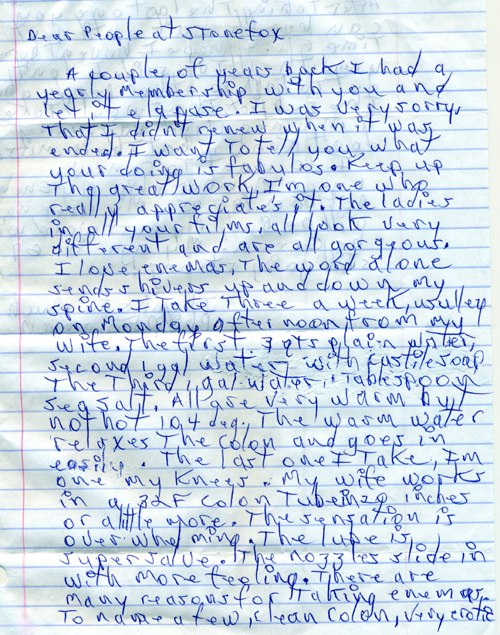 Dear People at Stonefox
A couple of years back I had a
yearly Membership with you and
let it elapase. I was very sorry,
That I didn't renew when it was
ended. I want To tell you what
your doing is fabulos. Keep up
The great work, I'm one who
really appreciate's it. The ladies
in all your films, all look very
different and are all gorgeour.
I love enemas, The word alone
sends shivers up and down my
spine. I Take Three a week, usulley
on Monday afternoon from my
wife. The first 3 qts plain water,
second 1 gal water with castile soap
The Third 1 gal water, 1 Tablespoon
sea salt. All are very warm but
not hot 104 deg. The warm water
relaxes The colon and goes in
easily. The last one I Take, I'm
one my Knees. My wife works
in a 32F Colon Tube in 20 inches
or a little more. The sensation is
over whelming. The lube is
super salve. The nozzle slide in
with more feeling. There are
many reasons for Taking enemas.
To name a few, clean Colon, very erotic